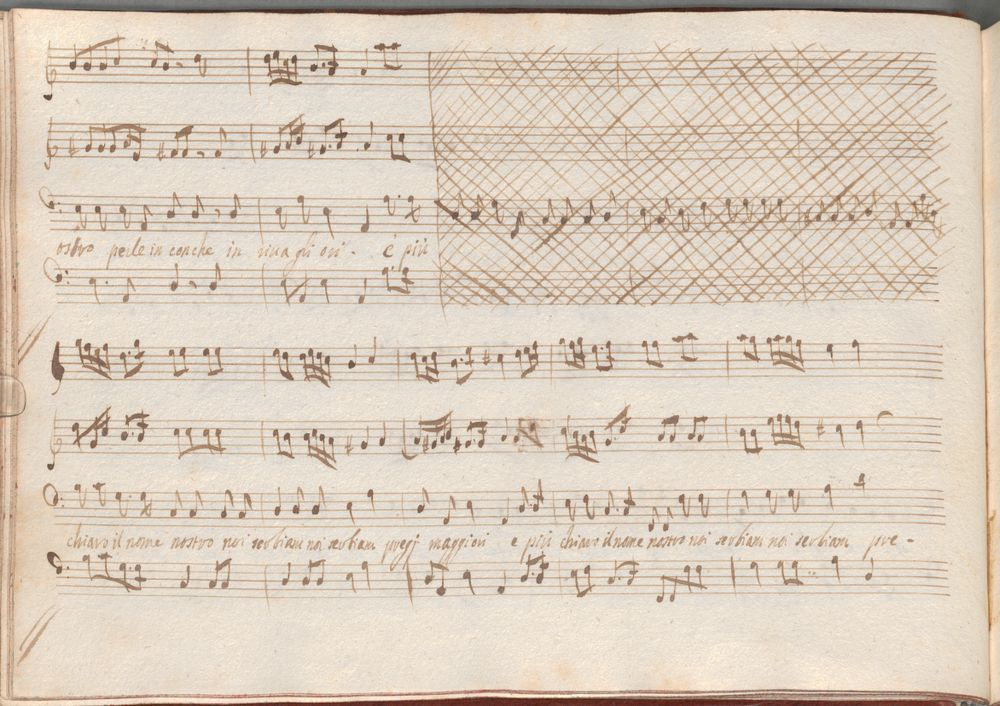 ostro perle in conche in riva gli ori - e più
chiaro il nome nostro noi serbiam noi serbiam pregj maggiori e più chiaro il nome nostro noi serbiam noi serbiam pre -